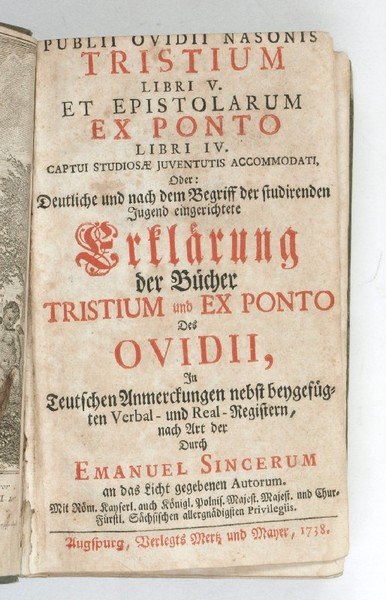 PUBLII OVIDII NASONIS
TRISTIUM
LIBRI V.
ET EPISTOLARUM
EX PONTO
LIBRI IV.
CAPTUI STUDIOSÆ JUVENTUTIS ACCOMMODATI,
Oder:
Deutliche und nach dem Begriff der studirenden
Jugend eingerichtete
Erklärung
der Bücher
TRISTIUM und EX PONTO
Des
OVIDII,
In
Teutschen Anmerckungen nebst beygefüg-
ten Verbal- und Real-Registern,
nach Art der
Durch
EMANUEL SINCERUM
an das Licht gegebenen Autorum.
Mit Röm. Kayserl. auch Königl. Polnis. Majest. Majest. und Chur-
Fürstl. Sächsischen allergnädigsten Privilegiis.
Augspurg, Verlegts Mertz und Mayer, 1738.